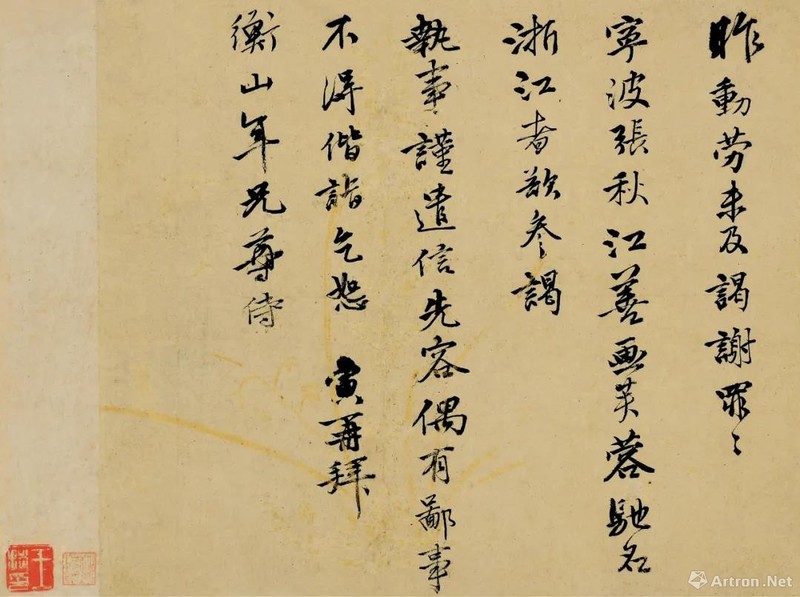 昨動勞未及謁謝罪〻
寧波張秋江善畫芙蓉馳名
浙江者欲參謁
執事謹遣信先容偶有鄙事
不得偕詣乞恕 寅再拜
衡山年兄尊侍
Artron.Net